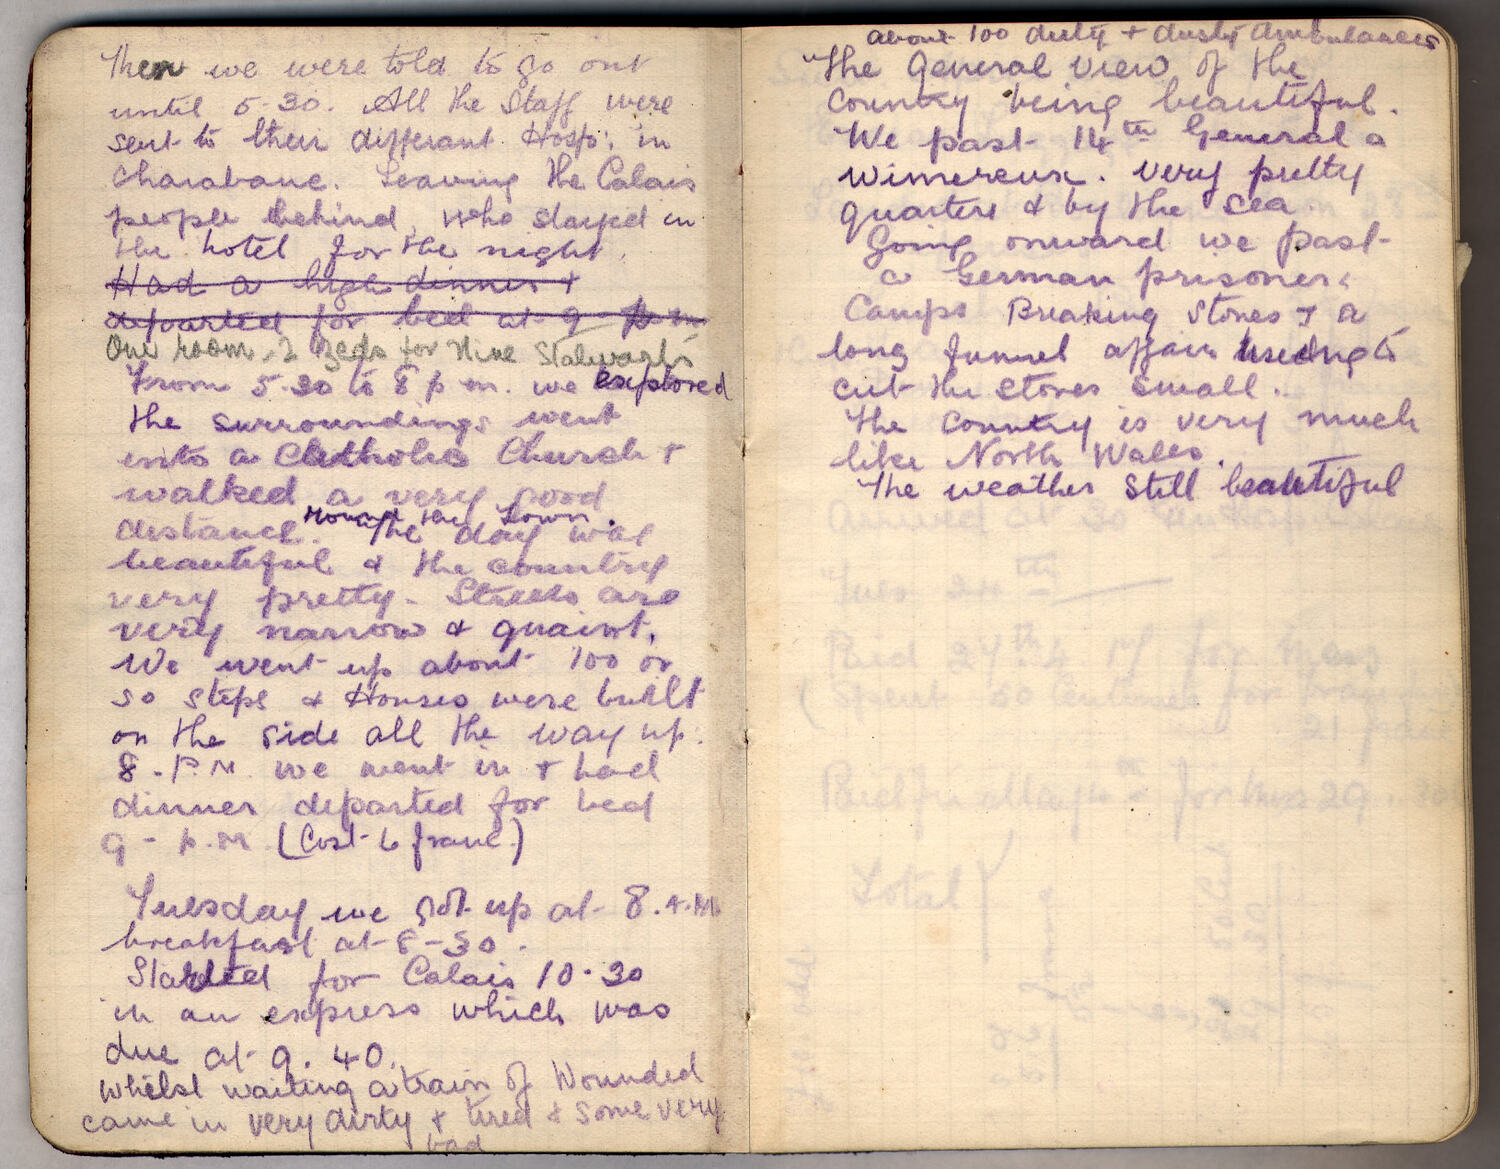 Then we were told to go out
until 5-30. All the Staff were
sent to their differant Hosp: in
Charabanc. Leaving the Calais
people behind, who stayed in
the hotel for the night.
Had a high dinner +
departed for bed at 9 p m
One room, 2 Beds for Nine Stalwarts
From 5-30 to 8 p m. we explored
the surroundings went
into a Catholic Church +
walked a very good
distance. Round the Town.
The day was
beautiful & the country
very pretty - Streets are
very narrow & quaint.
We went up about 100 or
so steps & Houses were built
on the side all the way up.
8. P.M. we went in + had
dinner departed for bed
9 - p.m. (Cost 6 franc.)
Tuesday we got up at 8. A.M
breakfast at 8-30.
Started for Calais 10-30
in an express which was
due at 9. 40.
Whilst waiting a train of Wounded
came in very dirty & tired & some very
bad
about 100 dirty + dusty Ambulances
The General view of the
Country being beautiful.
We past 14th General a
Wimereux. very pretty
quarters & by the Sea
Going onward we past
a German prisoners
Camps Breaking Stones & a
long funnel affair using to
cut the stones small.
The Country is very much
like North Wales.
The weather Still beautiful
Arrived at 30
Tues 24th
Paid 24th
Spent 50 Centimes for
Total